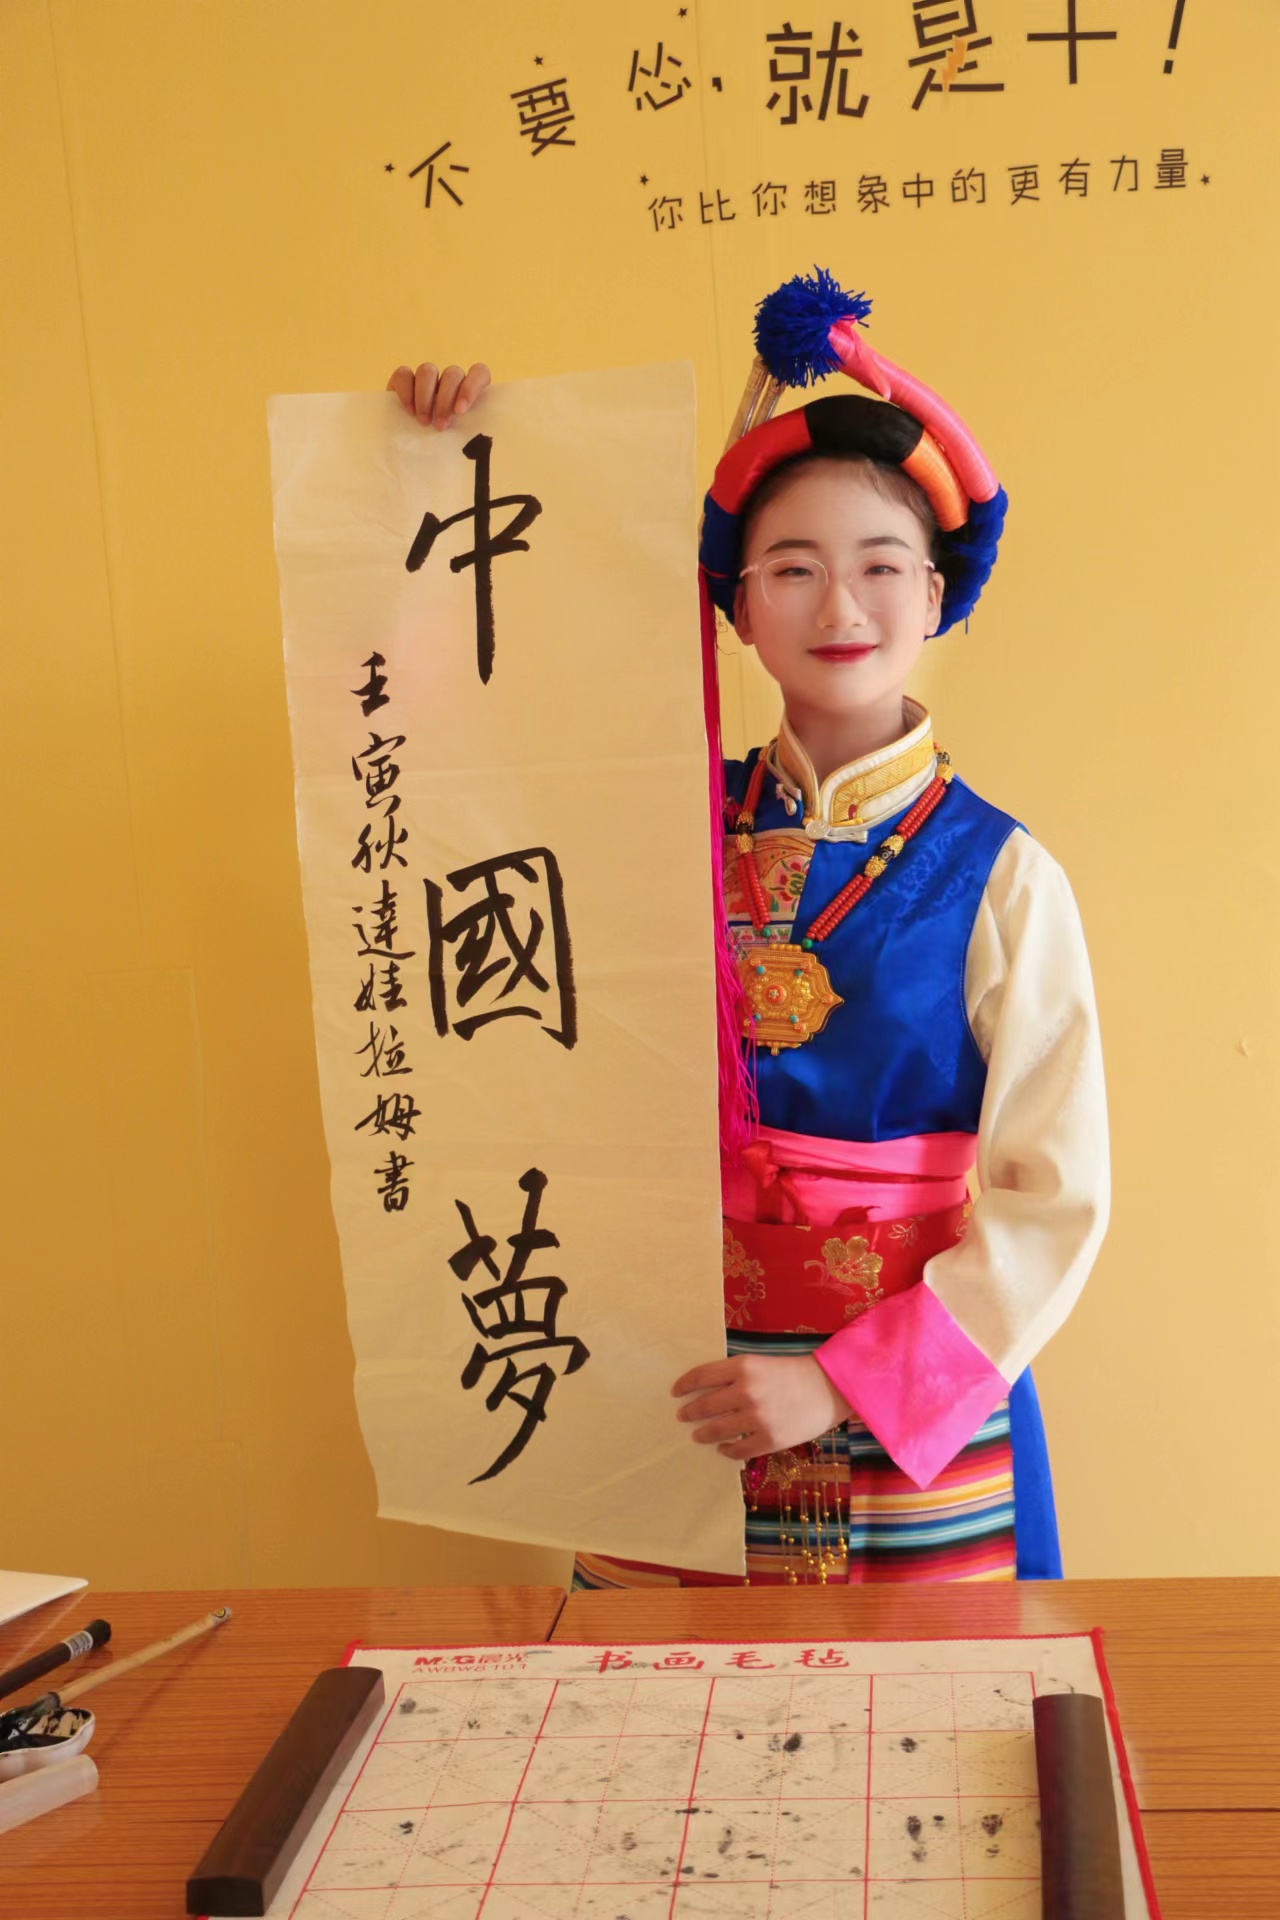 不要怂，就是干！
你比你想象中的更有力量
中國夢
壬寅秋達娃拉姆書
M&G晨光
书画毛毡